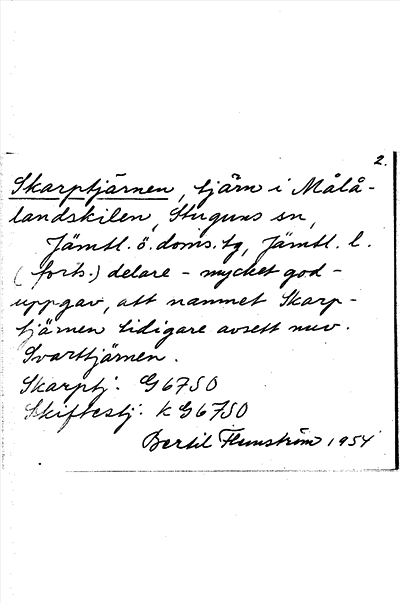 2.
Skarptjärnen, tjärn i Målå-
landskilen, Stuguns sn,
Jämtl. ö. doms. tg, Jämtl. l.
(forts.) delare – mycket god –
uppgav, att namnet Skarp-
tjärnen tidigare avsett nuv.
Svarttjärnen.
Skarptj: G6750
Skiftestj: k G6750
Bertil Flemström 1954